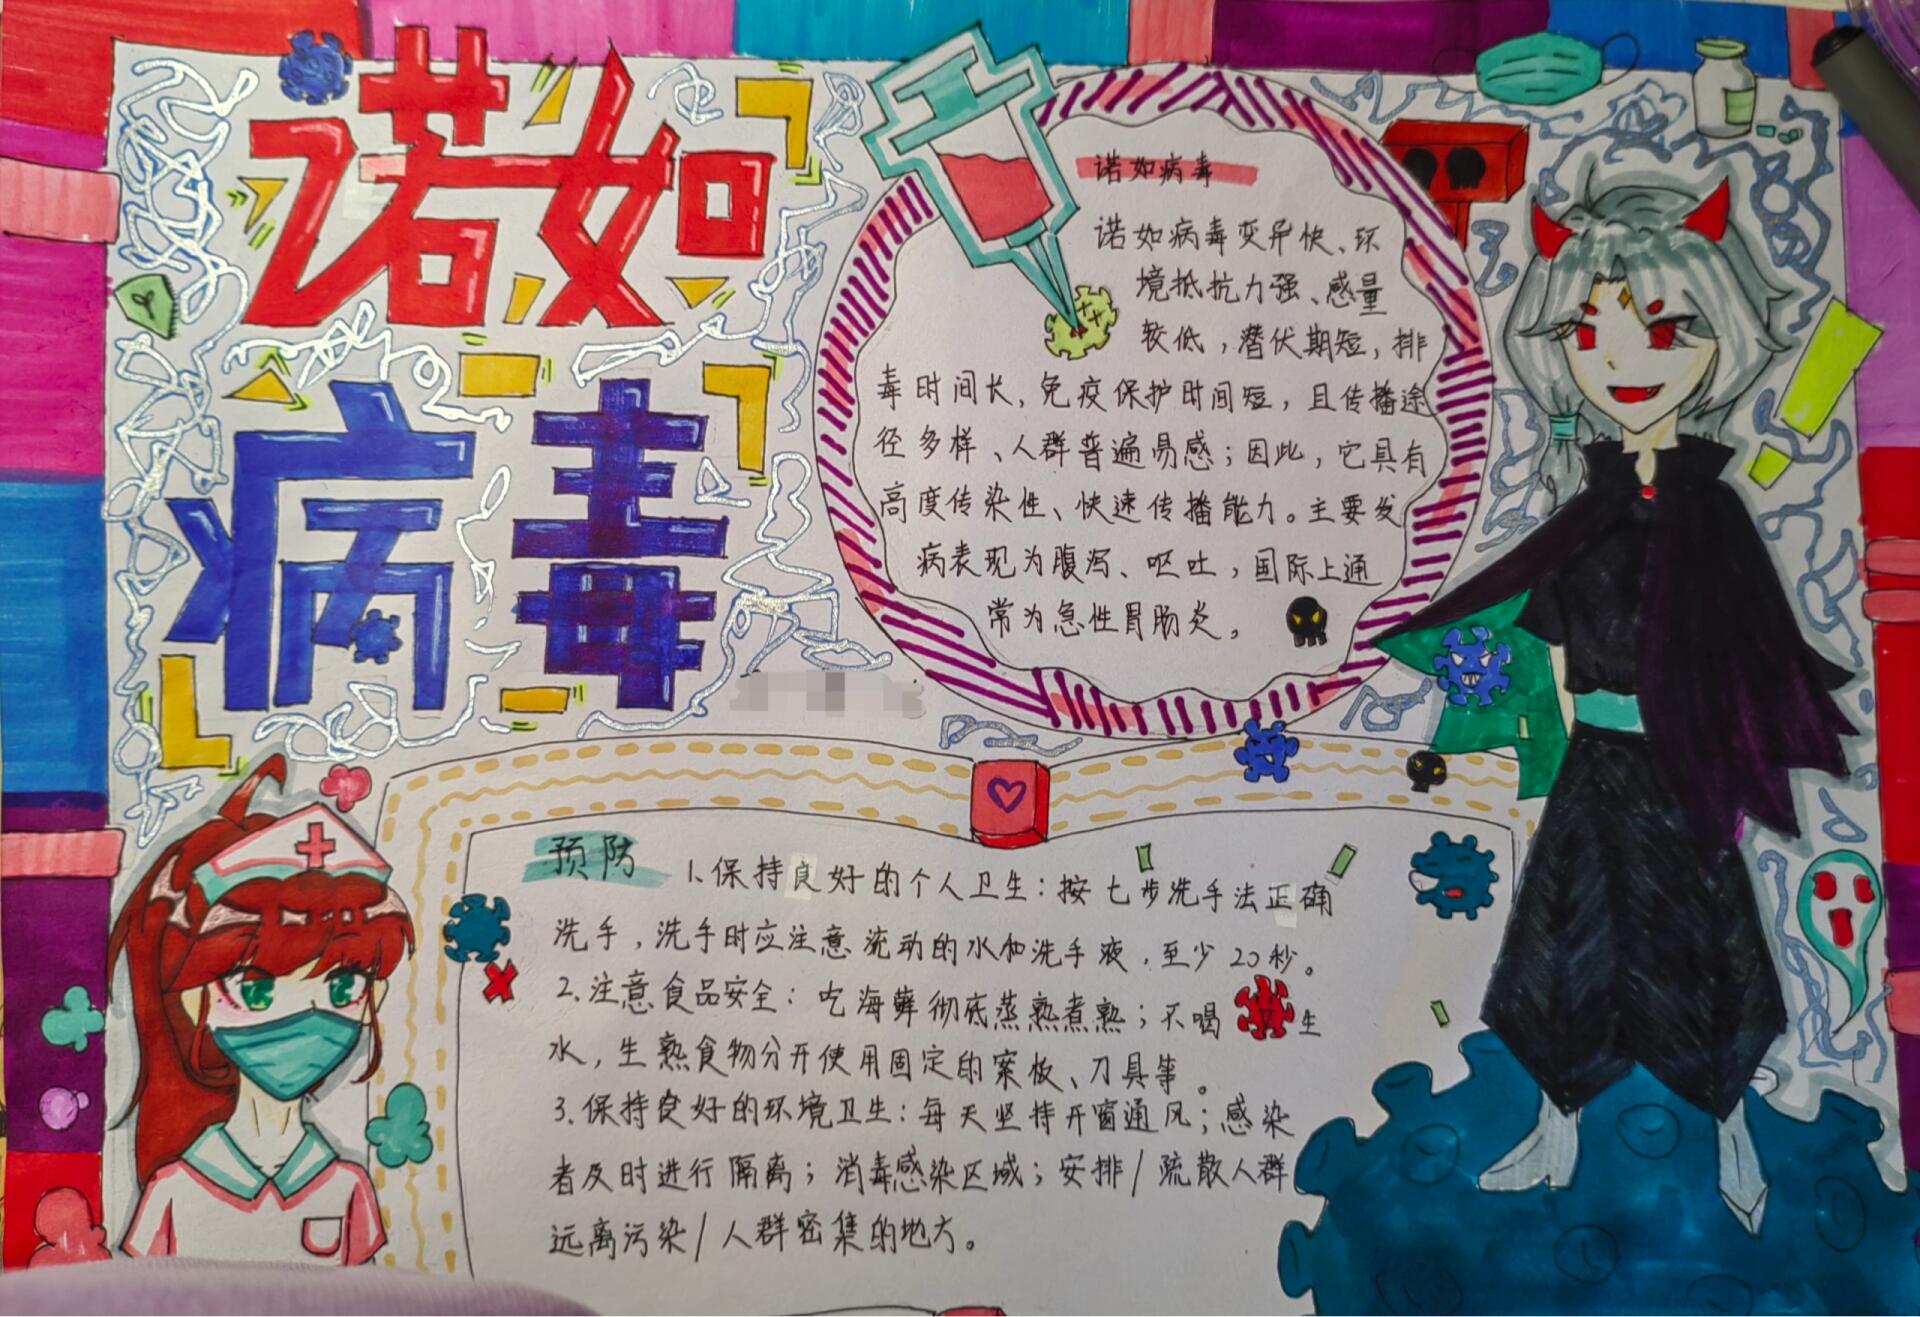 诺如
病毒
诺如病毒
诺如病毒变异快、环
境抵抗力强、感量
较低，潜伏期短，排
毒时间长，免疫保护时间短，且传播途
径多样、人群普遍易感；因此，它具有
高度传染性、快速传播能力。主要发
病表现为腹泻、呕吐，国际上通
常为急性胃肠炎。
预防 1.保持良好的个人卫生：按七步洗手法正确
洗手，洗手时应注意流动的水和洗手液，至少20秒。
2.注意食品安全：吃海鲜彻底蒸熟煮熟；不喝生
水，生熟食物分开使用固定的案板、刀具等。
3.保持良好的环境卫生：每天坚持开窗通风；感染
者及时进行隔离；消毒感染区域；安排/疏散人群
远离污染/人群密集的地方。